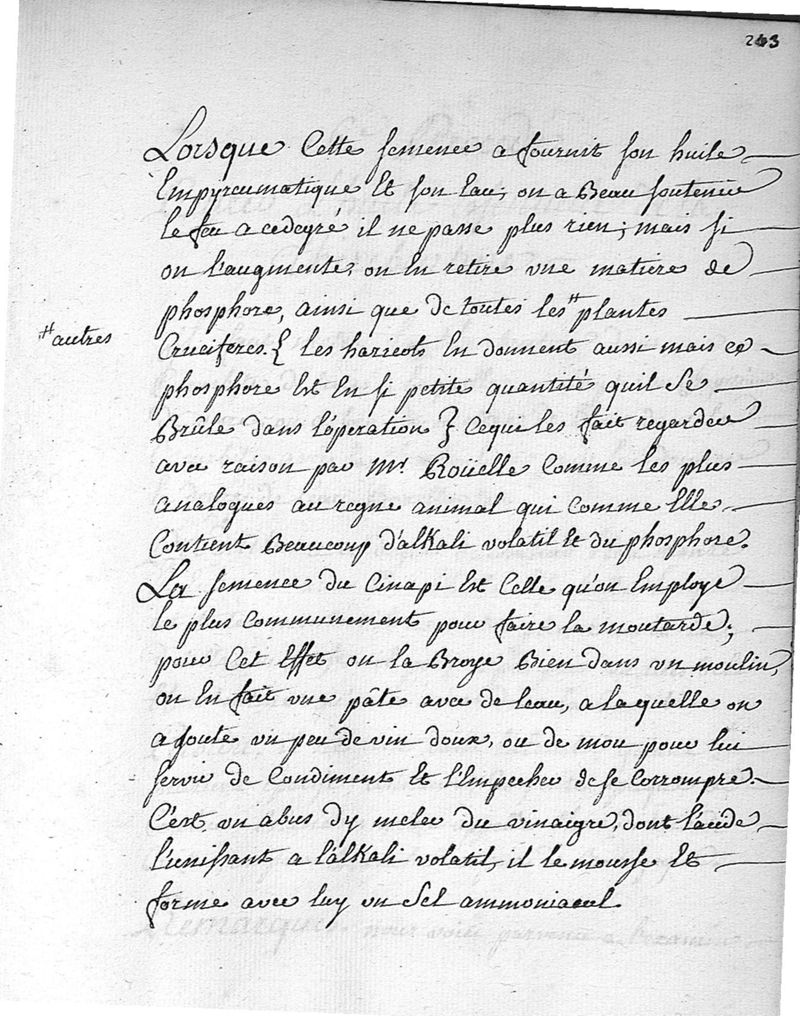 243
Lorsque Cette semence a fournit son huile
Empyreumatique Et son Eau, on a Beau soutenir
le feu a cedegré il ne passe plus rien; mais si
on l'augmente, on En retire vne matiere de
phosphore, ainsi que de toutes les # plantes
# autres
Cruciferes. { les haricots En donnent aussi mais ce
phosphore Est En si petite quantité quil se
Brûle dans l'óperation } cequi les fait regarder
avec raison par Mr. Roüelle Comme les plus
analogues au regne animal qui comme Elle
Contient Beaucoup d'alkali volatil Et du phosphore.
La semence du Cinapi Est Celle qu'on Employe
le plus communement pour faire la moutarde;
pour Cet Effet on la Broye Bien dans un moulin,
on En fait vne pâte avec de leau, a laquelle on
a joute vn peu de vin doux, ou de mou pour lui
servir de Condiment Et l'Empecher de se Corrompre.
C'est vn abus dy meler du vinaigre, dont lacide
l'unissant a l'alkali volatil, il le mousse Et
forme avec luy vn Sel ammoniacal